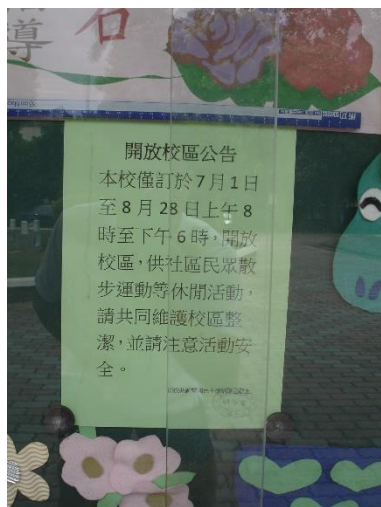 導 石
開放校區公告
本校僅訂於7月1日
至8月28日上午8
時至下午6時，開放
校區，供社區民眾散
步運動等休閒活動，
請共同維護校區整
潔，並請注意活動安
全。